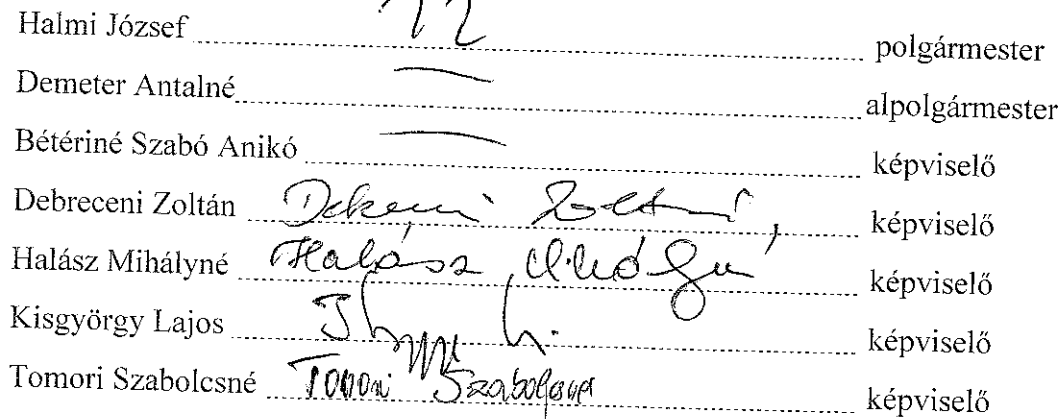 Halmi József ........ polgármester
Demeter Antalné ........ alpolgármester
Bétériné Szabó Anikó ........ képviselő
Debreceni Zoltán ........ képviselő
Halász Mihályné Halász ........ képviselő
Kisgyörgy Lajos ........ képviselő
Tomori Szabolcsné ........ képviselő